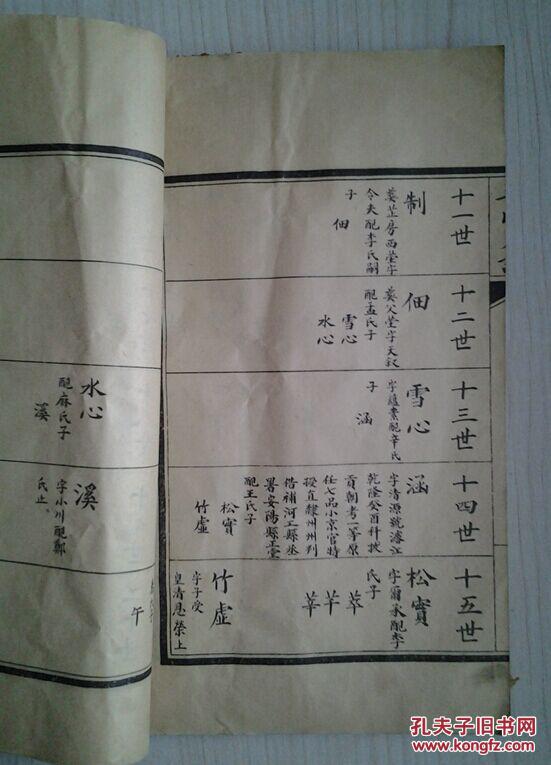 十一世
制
葬芷房西塋字
令夫配李氏嗣
子
佃
十二世
佃
葬父塋字天叙
配孟氏子
雪心
水心
十三世
雪心
字蘊素配辛氏
子
涵
十四世
涵
字清源號濬江
乾隆癸酉科拔
貢朝考一等原
任七品小京官特
授直隸州州判
借補河工縣丞
署安陽縣正堂
配王氏子
松實
竹虛
十五世
松實
字爾承配李
氏子
萃
芊
莘
竹虛
字子受
皇清恩榮上
水心
配麻氏子
溪
溪
字小川配鄭
氏止
午
孔夫子旧书网
www.kongfz.com